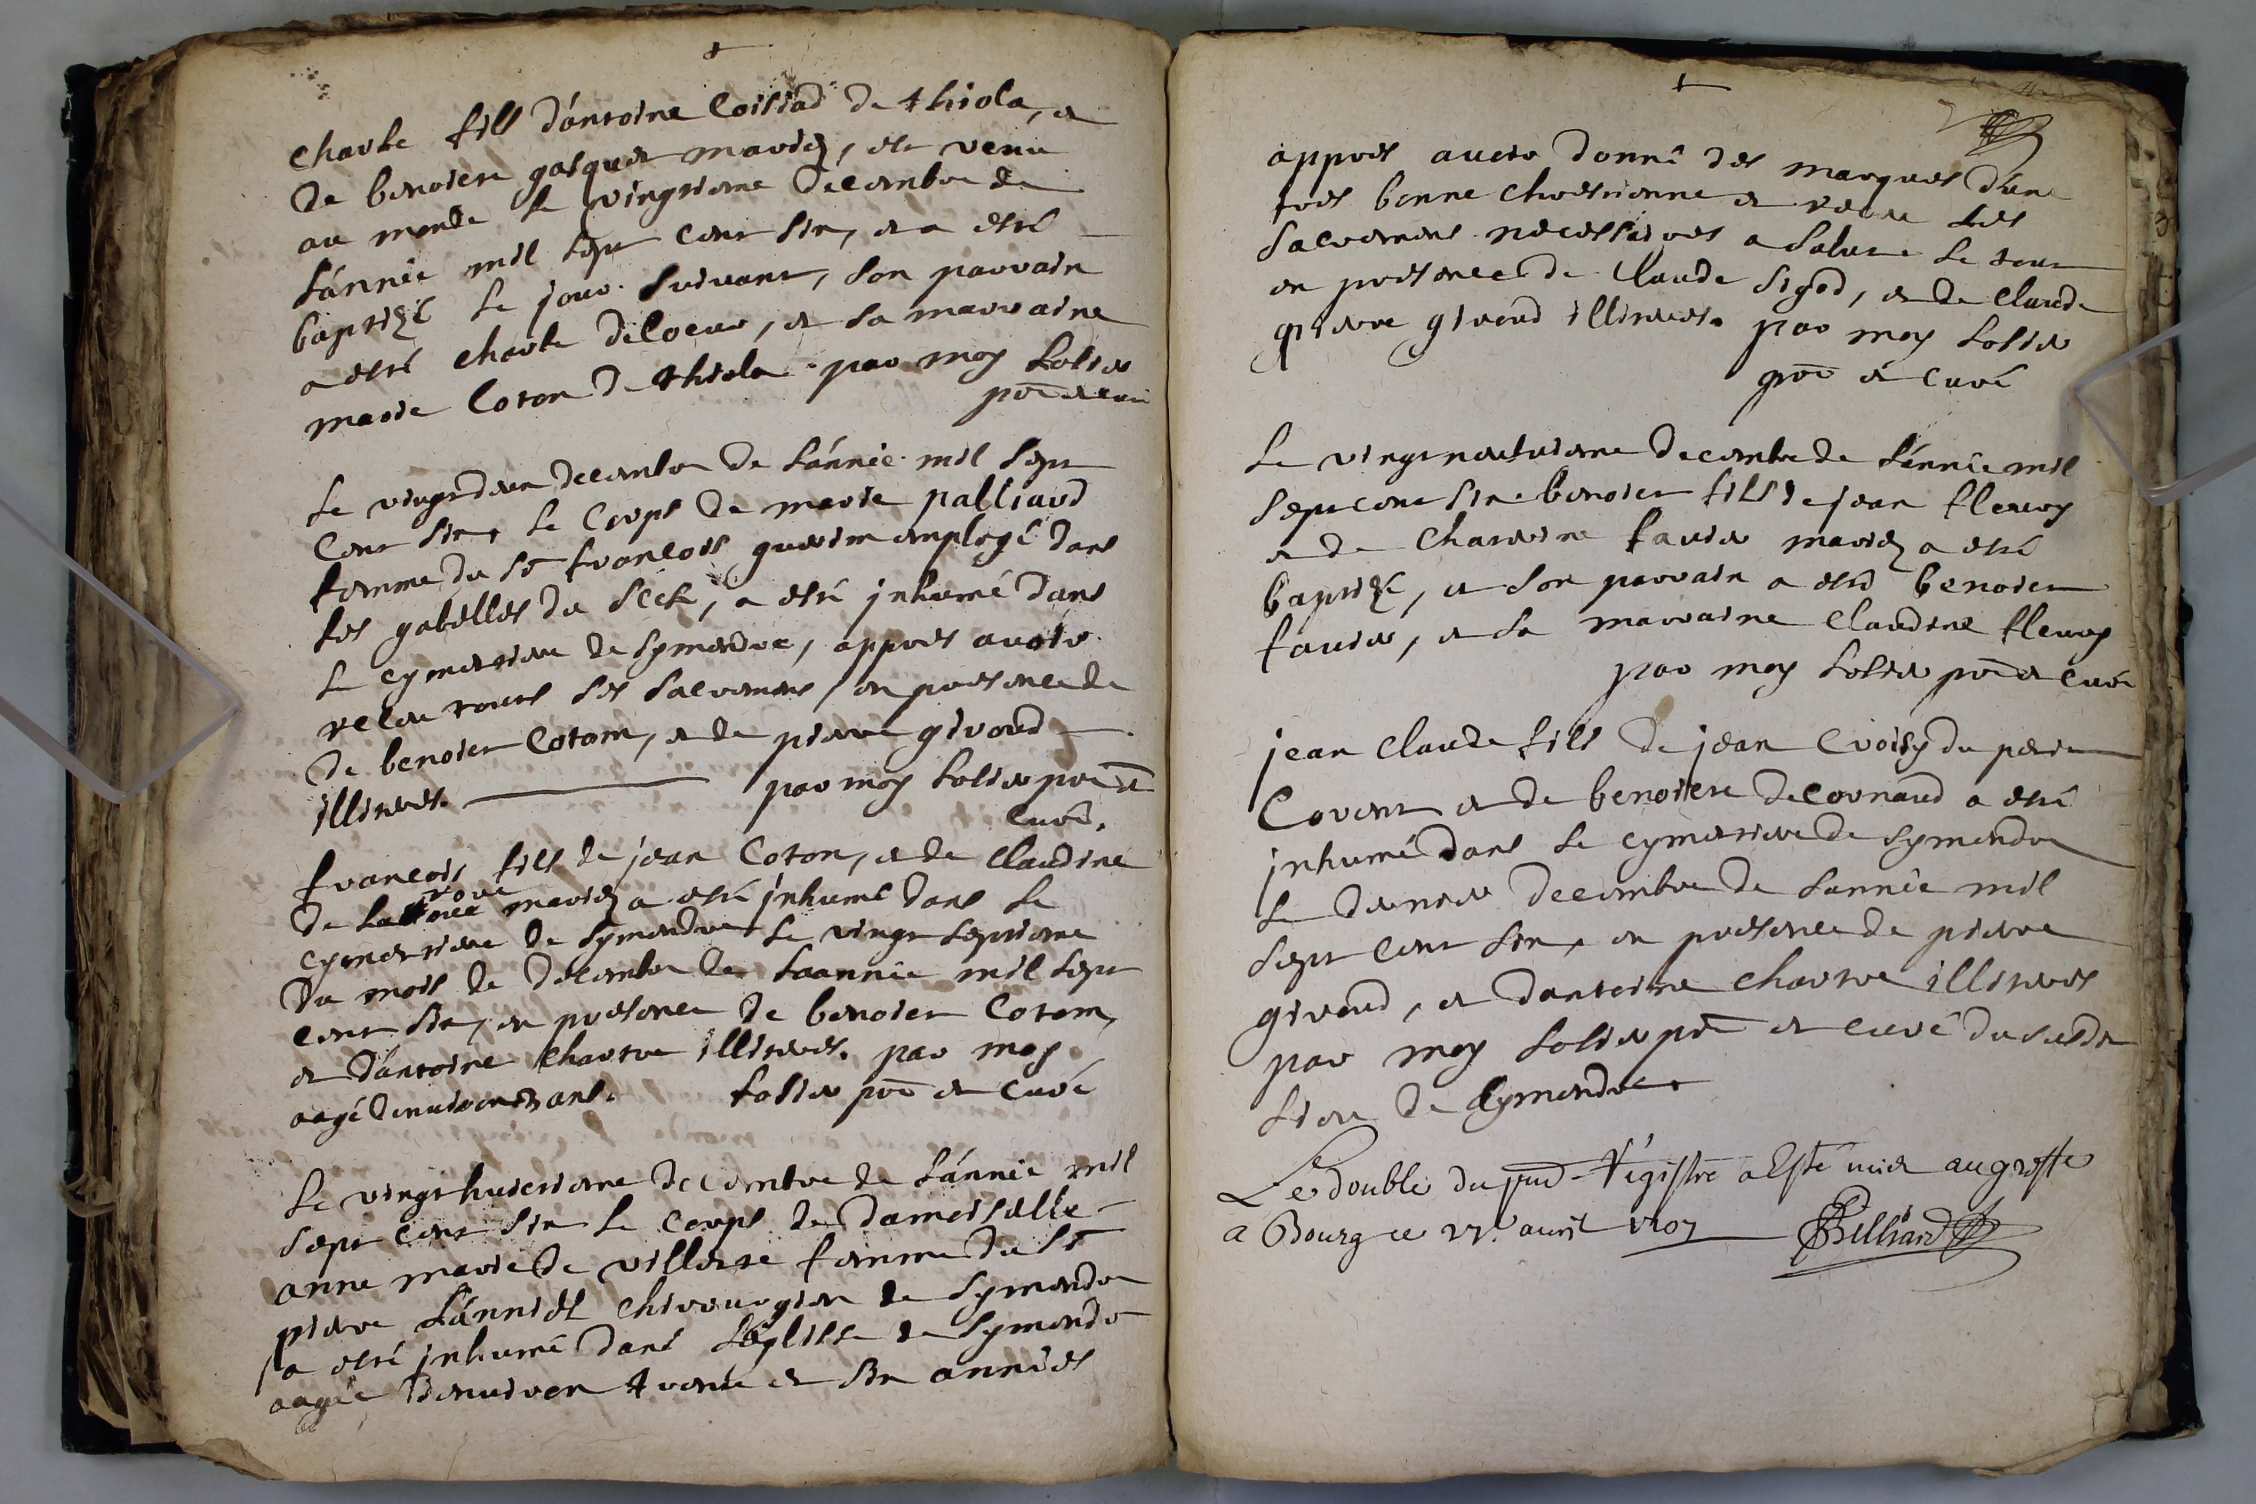 charle fils d'antoine Coisiad de thiola, et
de benoiste gasquet mariez, est venu
au monde le vingtieme decembre de
l'année mil sept cent six, et a esté
baptizé le jour suivant, son parrain
a esté charle decoeur, et sa marraine
marie Coton de thiola par moy Solier
pre et curé
Le vingt deux decembre de l'année mil sept
cent six, le corps de marie palliard
femme du Sr francois guerin employé dans
les gabelles du scel, a esté inhumé dans
le cymetiere de symandre, appres avoir
receu touts ses sacremens, en presence de
de benoist Cotom, et de pierre giroud
illiteres. par moy Solier pre et
curé.
francois fils de jean Coton, et de Claudine
de la roue mariez a esté inhumé dans le
cymetiere de symandre le vingt septieme
du mois de decembre de l'année mil sept
cent six, en presence de benoist Cotom,
et d'antoine chartre illiteres. par moy
aagé d'environ ans. Solier pre et curé
Le vingt huictieme decembre de l'année mil
sept cent six le corps de damoiselle
anne marie de villette femme du Sr
pierre Lanniel chirurgien de symandre
a esté inhumé dans l'eglise de symandre
aagée d'environ trente et six années
appres avoir donné des marques d'une
tres bonne chrestienne et receu les
sacremens necessaires a salut le tout
en presence de Claude sigod, et de Claude
pierre giroud illiteres. par moy Solier
pre et curé
Le vingt neufvieme decembre de l'année mil
sept cent six benoist fils de jean fleury
et de Catherine favier mariez a esté
baptizé, et son parrain a esté benoist
favier, et sa marraine Claudine fleury
par moy Solier pre et curé
jean claude fils de jean Croisy du petit
Corent et de benoiste decornaud a esté
inhumé dans le cymetiere de symandre
le dernier decembre de l'année mil
sept cent six, en presence de pierre
giroud, et d'antoine chartre illiteres
par moy Solier pre et curé du susdit
lieu de symandre
Le double du pnt Régistre a Esté mis au greffe
a Bourg ce avril 1707 Billiard